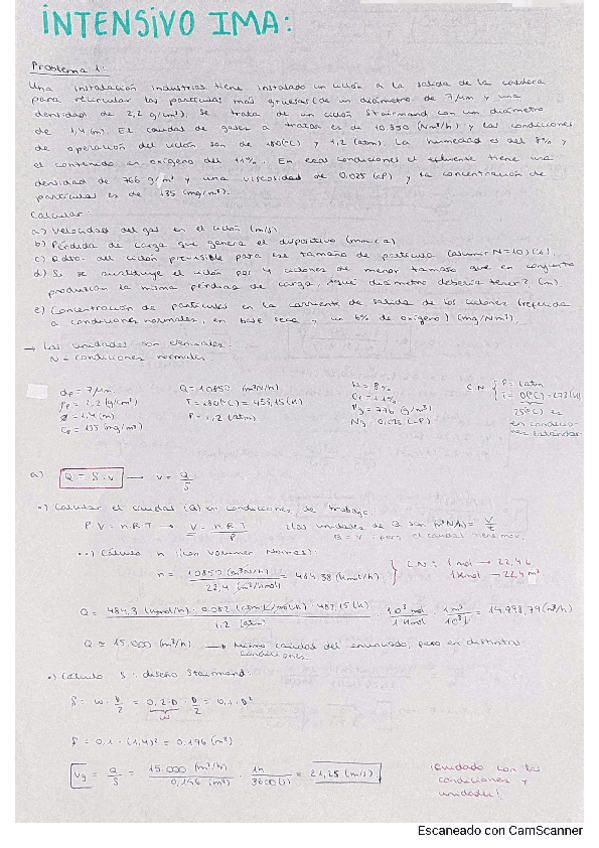 INTENSIVO IMA:
Problema 1:
Una instalación industrial tiene instalado un ciclón a la salida de la caldera
para recircular las partículas más gruesas (de un diámetro de 7 μm y una
densidad de 2,2 g/cm³). Se trata de un ciclón Stairmand con un diámetro
de 1,4 (m). El caudal de gases a tratar es de 10.850 (Nm³/h) y las condiciones
de operación del ciclón son de 180(ºC) y 1,2 (atm). La humedad es del 8% y
el contenido en oxígeno del 11%. En esas condiciones el efluente tiene una
densidad de 766 g/m³ y una viscosidad de 0,025 (cP) y la concentración de
partículas es de 135 (mg/m³).
Calcular:
a) Velocidad del gas en el ciclón (m/s)
b) Pérdida de carga que genera el dispositivo (mmca)
c) Rdto. del ciclón previsible para ese tamaño de partícula (asumir N=10)
d) Si se sustituye el ciclón por 4 ciclones de menor tamaño que en conjunto
produzcan la misma pérdida de carga, ¿qué diámetro debería tener? (m).
e) Concentración de partículas en la corriente de salida de los ciclones (referida
a condiciones normales, en base seca y un 6% de oxígeno) (mg/Nm³).
→ Las unidades son
N = condiciones normales
dp = 7 μm
ρp = 2,2 (g/cm³)
= 1,4 (m)
= 135 (mg/m³)
Q = 10850 (m³N/h)
T = 180(ºC) = 453,15(K)
P = 1,2 (atm)
= 8%
= 11%
(g/m³)
0,025 (cP)
C.N { P = 1 atm
T = 0(ºC) = 273(K)
25(ºC) es
en condicio-
nes estándar
a) Q = S · v → v = Q/S
•) Calcular el caudal (Q) en condiciones de trabajo
P V = n.R.T → V = n.R.T / P
••) Cálculo n (con volumen Normal):
n = 10850 (m³N/h) / 22,4 (m³/kmol) = 484,38 (kmol/h) } C.N: 1 mol → 22,4 L
1 kmol → 22,4 m³
Q = 484,3 (kmol/h) · 0,082 (atm·L/mol·K) · (K) / 1,2 (atm) · 10³ mol / 1 kmol · 1 m³ / 10³ L = 14.998,79 (m³/h)
Q ≅ 15.000 (m³/h) → mismo caudal del enunciado, pero en distintas
condiciones.
•) Cálculo S: diseño Stairmand:
S = w · D/2 = 0,2·D · D/2 = 0,1·D²
w
S = 0,1 · (1,4)² = 0,196 (m²)
Vg = Q/S = 15.000 (m³/h) / 0,196 (m²) · 1h / 3600(s) = 21,25 (m/s)
¡Cuidado con las
condiciones y
unidades!
Escaneado con CamScanner